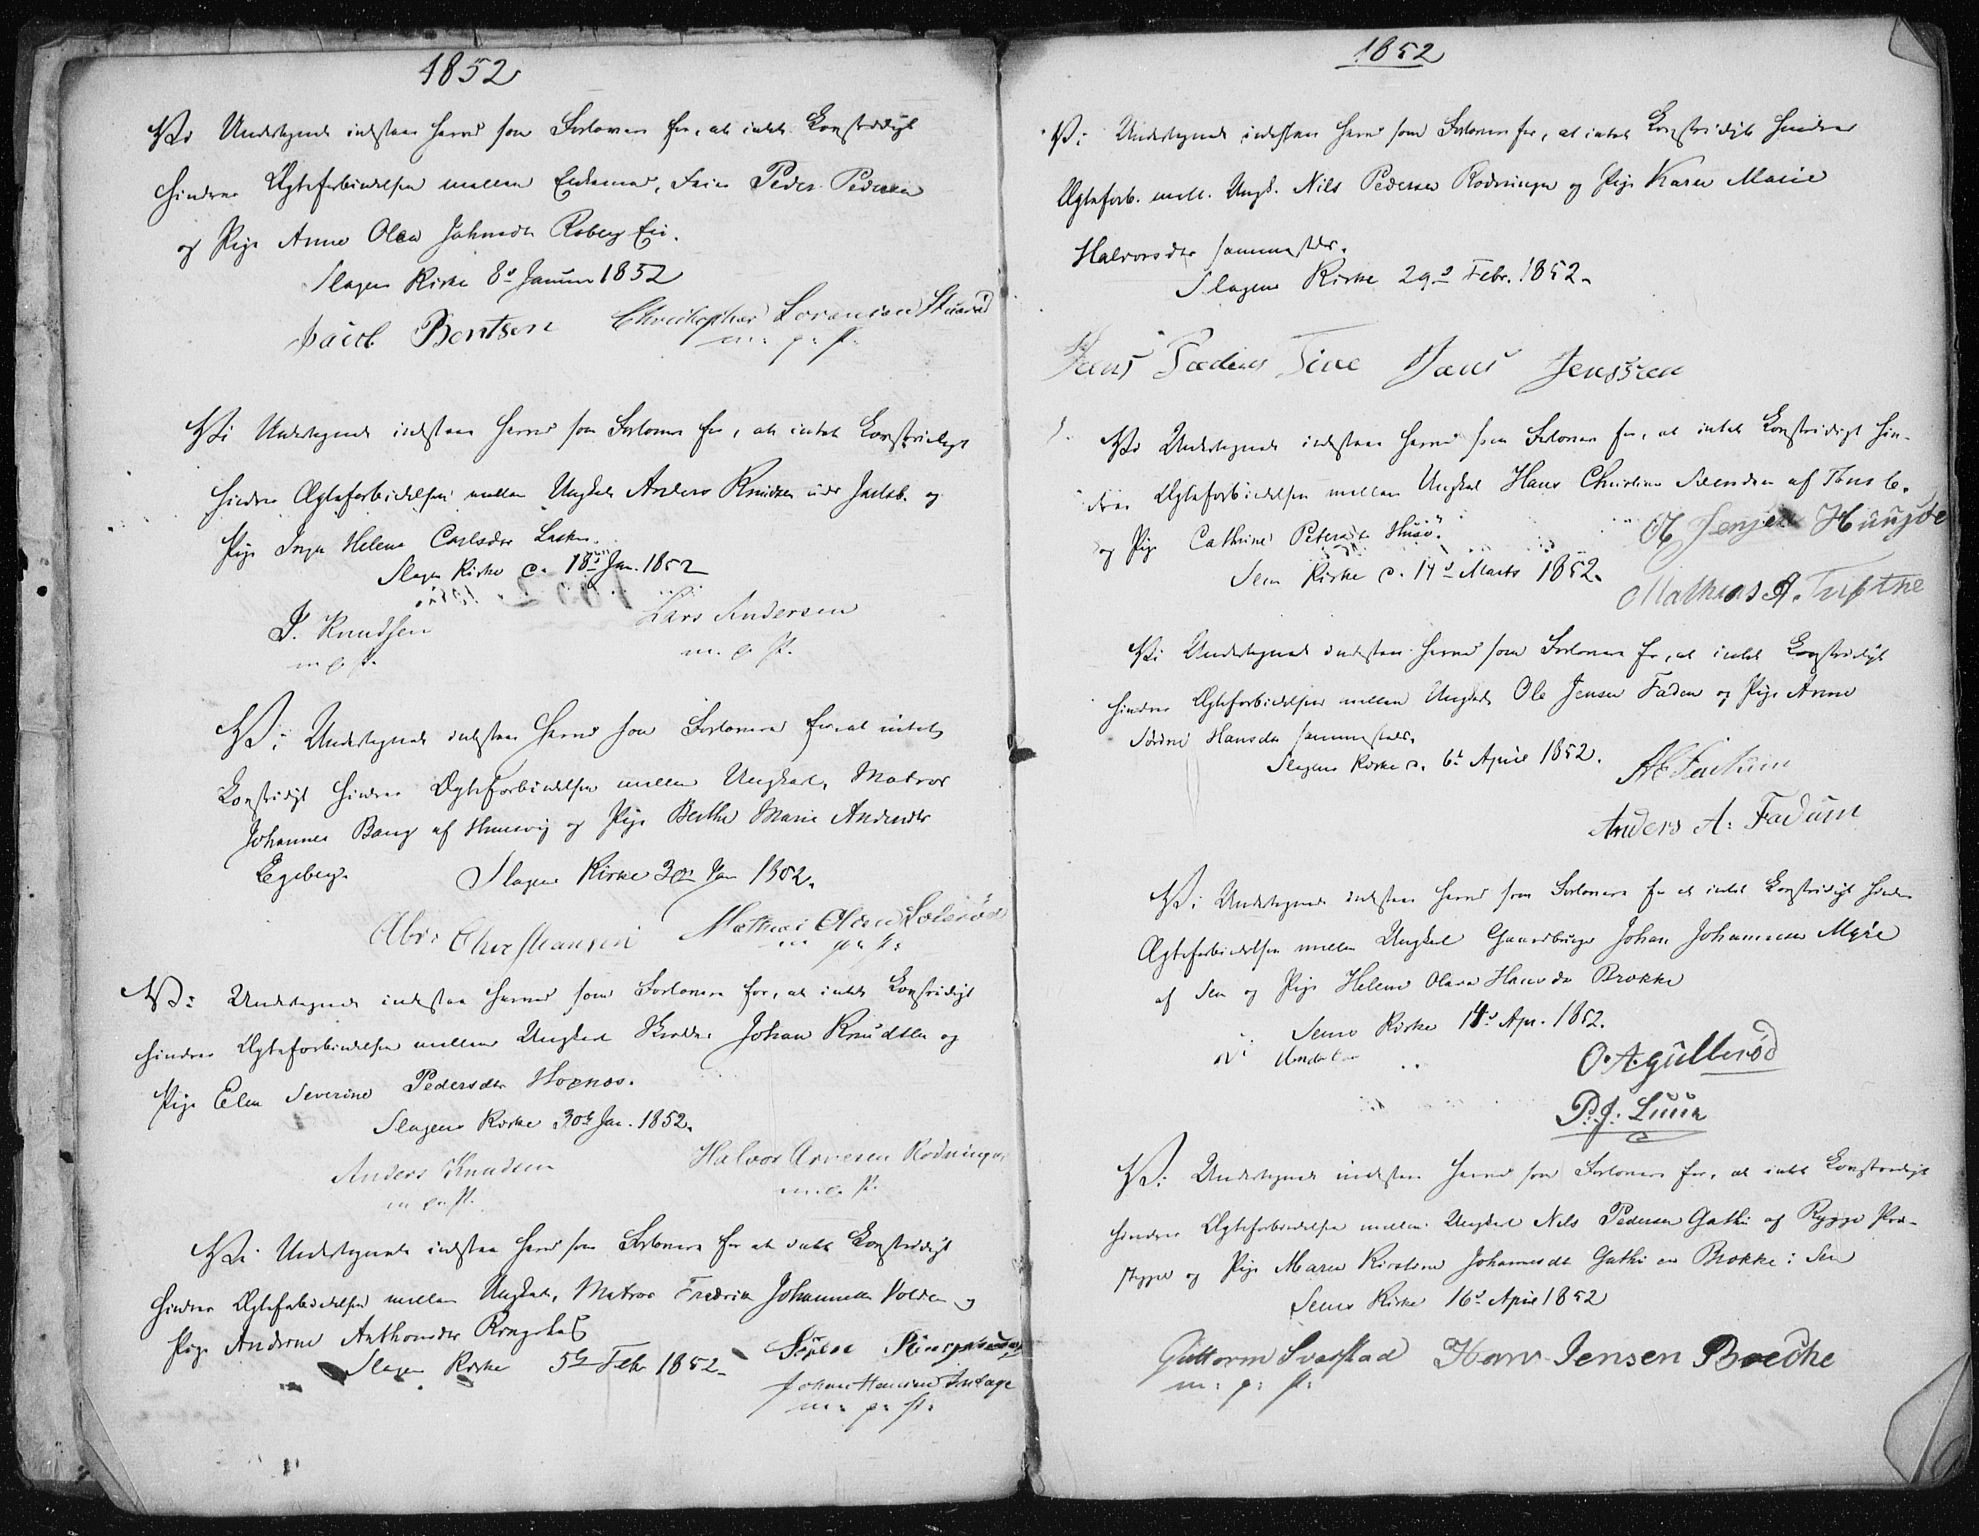 1852
Vi Undertegnede indestaae herved som Forlovere for, at intet Lovstridigt
hindrer Ægteforbindelsen mellem Enkemand, Peder Pedersen
og Pige Anne Olea Johnsdtr Roberg Eie.
Slagens Kirke 8de Januar 1852
Jacob Bentsen Christopher Sörensen
m. p. P.
Vi Undertegnede indestaae herved som Forlovere for, at intet Lovstridigt
hindrer Ægteforbindelsen mellem Ungkarl Anders Knudsen og
Pige Inger Helene Carlsdtr
Slagens Kirke d. 18de Jan. 1852
J. Knudsen Lars Andersen
m. p. P. m. p. P.
Vi Undertegnede indestaae herved som Forlovere for at intet
Lovstridigt hindrer Ægteforbindelsen mellem Ungkarl, Matros
Johannes Bang af og Pige Berthe Marie Andersdtr
Egeberg.
Slagens Kirke 30te Jan 1852.
Mathias Olsen
m. p. P.
Vi Undertegnede indestaae herved som Forlovere for, at intet Lovstridigt
hindrer Ægteforbindelsen mellem Ungkarl Johan Knudtsen og
Pige Elen Severine Pedersdtr Hoxnæs.
Slagens Kirke 30te Jan. 1852.
Anders Knudsen Halvor Arvesen Rodningen
m. p. P. m. p. P.
Vi Undertegnede indestaae herved som Forlovere for at intet Lovstridigt
hindrer Ægteforbindelsen mellem Ungkarl, Matros Fredrik Johannesen Volden og
Pige Andrine Anthonsdtr Ringshoug
Slagens Kirke 5te Febr 1852.
Johan Hansen
m. p. P.
1852
Vi Undertegnede indestaae herved som Forlovere for, at intet Lovstridigt hindrer
Ægteforb. mell. Ungk. Nils Pedersen Rodningen og Pige Karen Marie
Halvorsdtr sammesteds.
Slagens Kirke 29de Febr. 1852.
Hans Jenssen
Vi Undertegnede indestaae herved som Forlovere for, at intet Lovstridigt hin-
drer Ægteforbindelsen mellem Ungkarl Hans Christian Svendsen af Tønsb.
og Pige Cathrine Petersdtr Husö.
Sem Kirke d. 14de Marts 1852.
Mathias A.
Vi Undertegnede indestaae herved som Forlovere for, at intet Lovstridigt
hindrer Ægteforbindelsen mellem Ungkarl Ole Jensen Fadum og Pige Anne
Hansdtr sammesteds.
Slagens Kirke d. 6te April 1852.
Anders A: Fadum
Vi Undertegnede indestaae herved som Forlovere for at intet Lovstridigt hindrer
Ægteforbindelsen mellem Ungkarl Gaardbruger Johan Johannesen Myre
af Sem og Pige Helene Olava Hansdtr Brokke
Sems Kirke 14de Apr. 1852.
O. A. Gullerød
P. J. Luur
Vi Undertegnede indestaae herved som Forlovere for, at intet Lovstridigt
hindrer Ægteforbindelsen mellem Ungkarl Nils Pedersen Gathe af Rygge Præ-
stegjed og Pige Maren Kirstine Johannesdtr Brokke i Sem
Sems Kirke 16de April 1852
Guttorm Svarstad Hans Jensen Broche
m. p. P.